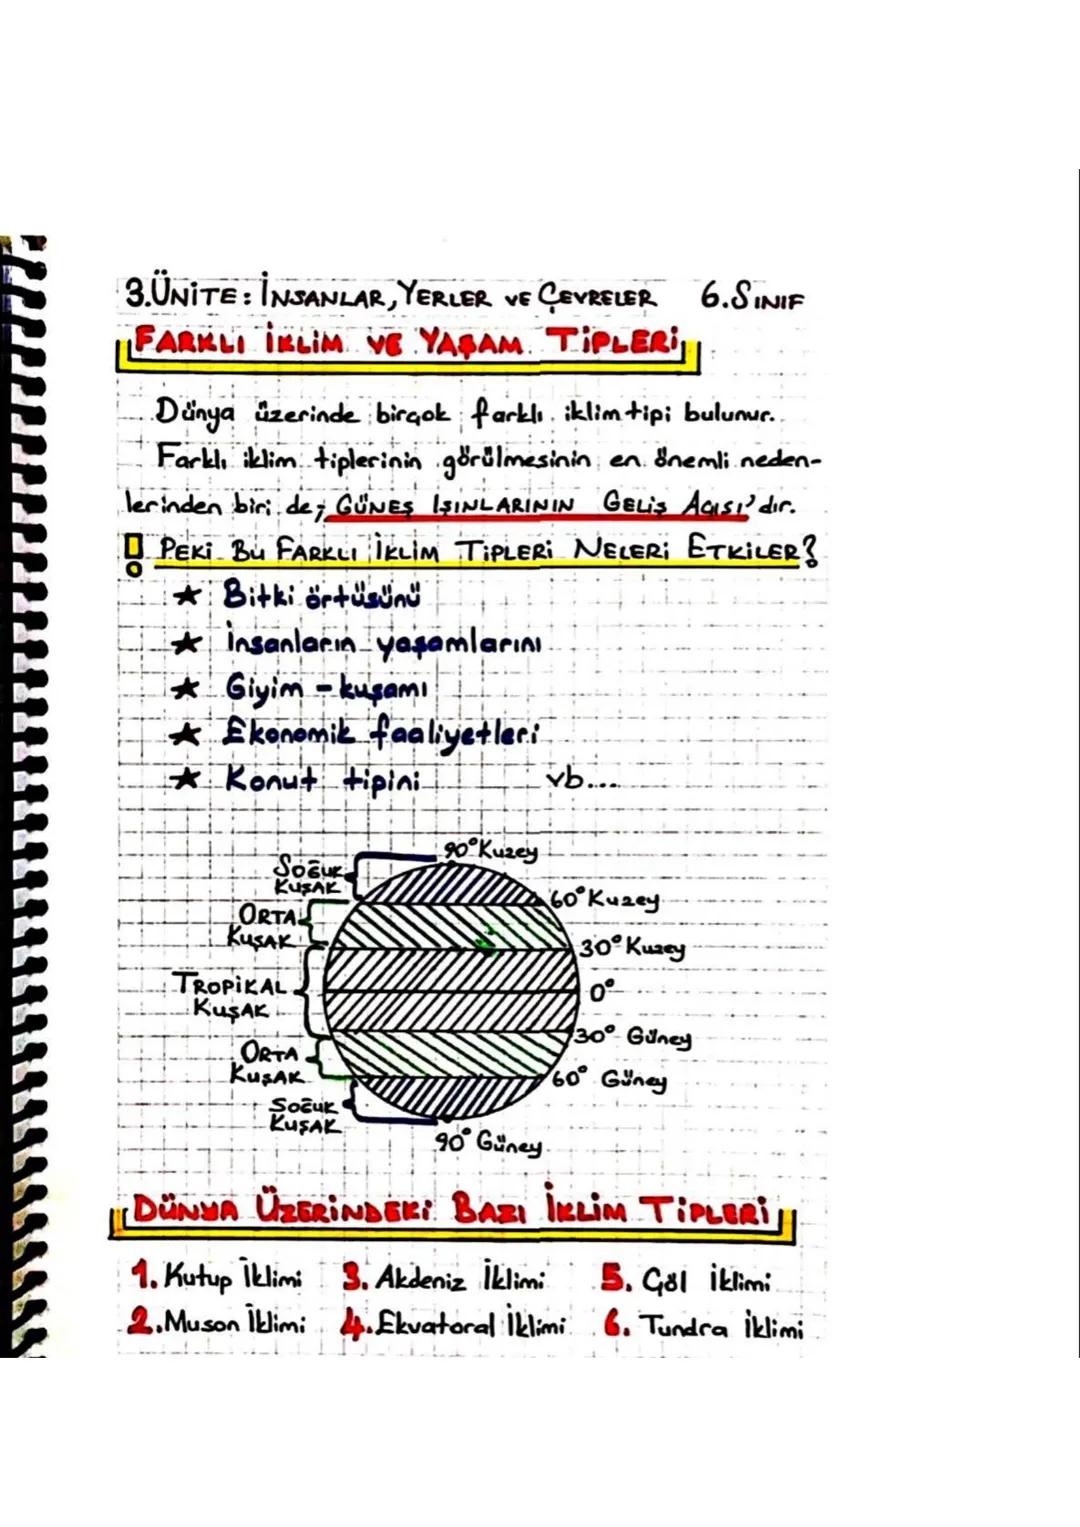 3.ÜNİTE: İNSANLAR, YERLER VE ÇEVRELER 6.SINIF
FARKLI İKLİM VE YAŞAM TİPLERİ
Dünya üzerinde birçok farklı iklim tipi bulunur.
Farklı iklim tiplerinin görülmesinin en önemli neden-
lerinden biri de; GÜNEŞ IŞINLARININ GELİŞ AÇISI'dır.
! PEKİ BU FARKLI İKLİM TİPLERİ NELERİ ETKİLER?
★ Bitki örtüsünü
★ İnsanların yaşamlarını
★ Giyim - kuşamı
★ Ekonomik faaliyetleri
★ Konut tipini vb....
90° Kuzey
SOĞUK
KUŞAK
60° Kuzey
ORTA
KUŞAK
30° Kuzey
TROPİKAL
KUŞAK
0°
30° Güney
ORTA
KUŞAK
60° Güney
SOĞUK
KUŞAK
90° Güney
DÜNYA ÜZERİNDEKİ BAZI İKLİM TİPLERİ
1. Kutup İklimi 3. Akdeniz İklimi 5. Çöl İklimi
2. Muson İklimi 4. Ekvatoral İklimi 6. Tundra İklimi